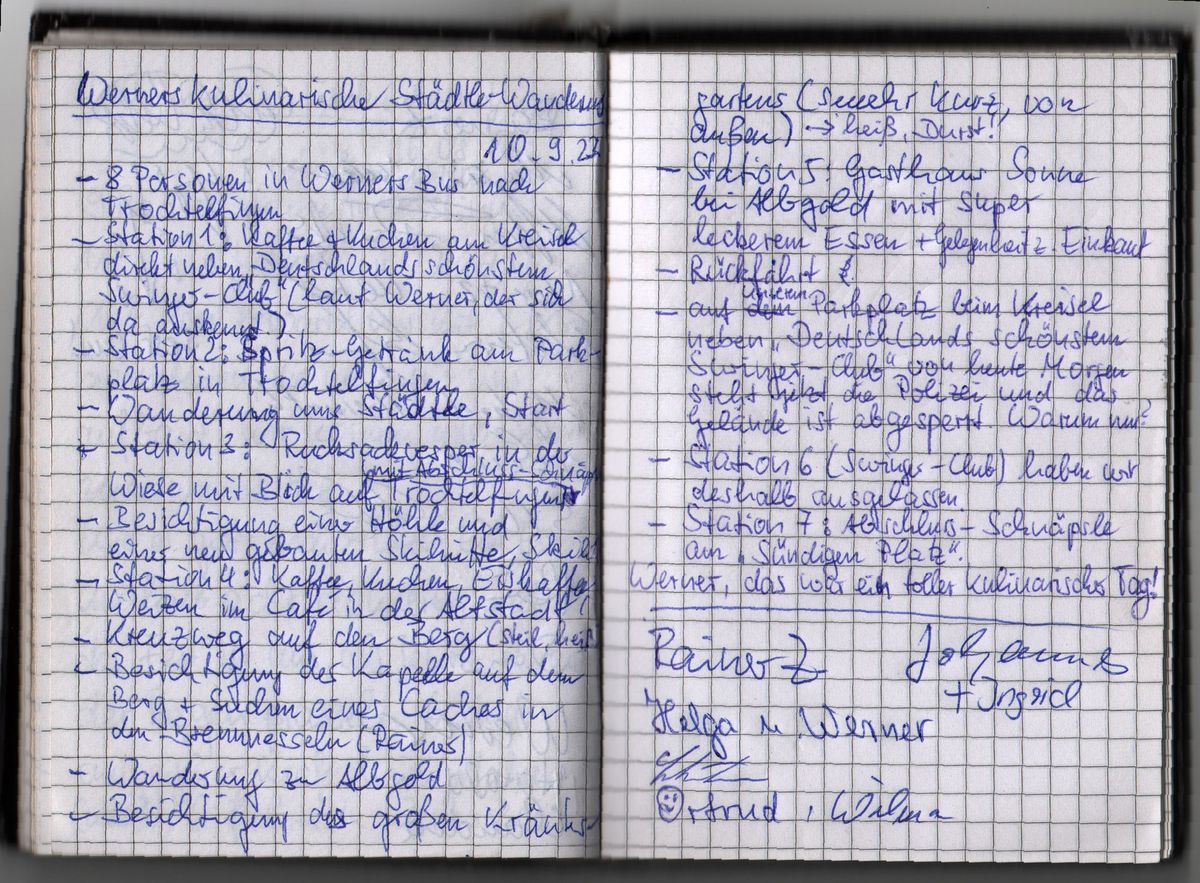 Werners kulinarische Städtle-Wanderung
10.9.23
- 8 Personen in Werners Bus nach
Trochtelfingen
- Station 1: Kaffee + Kuchen am Kreisel
direkt neben „Deutschlands schönstem
Swinger-Club" (laut Werner, der sich
da auskennt)
- Station 2: Spritz-Getränk am Park-
platz in Trochtelfingen
- Wanderung ums Städtle, Start
- Station 3: Rucksackvesper in der
mit Abschluss-Schnäpsle
Wiese mit Blick auf Trochtelfingen
- Besichtigung einer Höhle und
einer neu gebauten Skihütte, Skilift
- Station 4: Kaffee, Kuchen, Eiskaffee,
Weizen im Café in der Altstadt
- Kreuzweg auf den Berg (steil, heiß)
- Besichtigung der Kapelle auf dem
Berg + Suchen eines Caches in
den Brennnesseln (Rainer)
- Wanderung zu Albgold
- Besichtigung des großen Kräuter-
gartens (seeehr kurz, von
außen) → heiß, Durst!
- Station 5: Gasthaus Sonne
bei Albgold mit super
leckerem Essen + Gelegenheit z. Einkauf
- Rückfahrt
unserem
- auf dem Parkplatz beim Kreisel
neben „Deutschlands schönstem
Swinger-Club" von heute Morgen
steht jetzt die Polizei und das
Gelände ist abgesperrt. Warum nur?
- Station 6 (Swinger-Club) haben wir
deshalb ausgelassen.
- Station 7: Abschluss-Schnäpsle
am „Sündigen Platz".
Werner, das war ein toller kulinarischer Tag!
Rainer Z Johannes
+ Ingrid
Helga u. Werner
Ortrud, Wilma